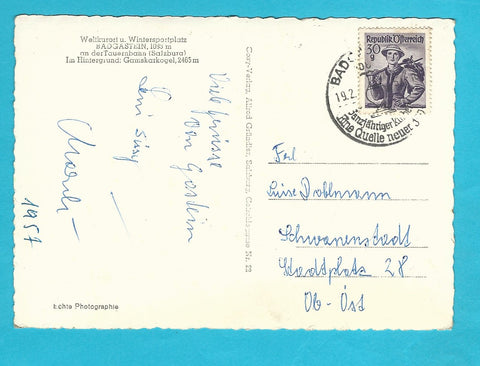 Weltkurort u. Wintersportplatz
BADGASTEIN, 1083 m
an der Tauernbahn (Salzburg)
Im Hintergrund: Gamskarkogel, 2465 m
Viele Grüsse
von Gastein
1957
Echte Photographie
Cosy-Verlag, Alfred Gründler, Salzburg,
Nr. 22
Republik Österreich
30
g
BADG
19.2.
Ganzjähriger Kur
Eine Quelle neuer
Frl.
Luise Doblmann
Schwanenstadt
Stadtplatz 28
Ob-Öst